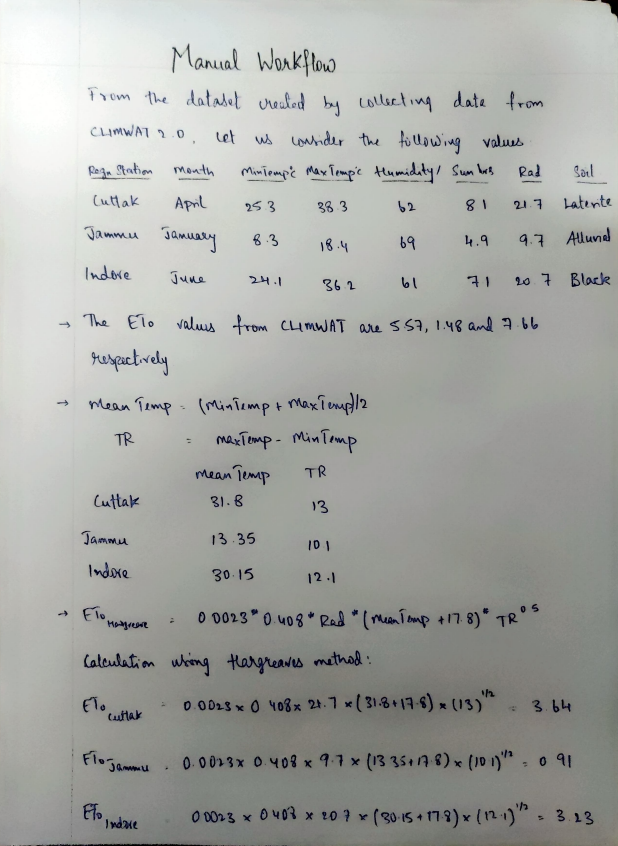 Manual Workflow
From the dataset created by collecting data from
CLIMWAT 2.0, let us consider the following values.
Regn Station month MinTemp°c MaxTemp°c Humidity/ Sun hrs Rad Soil
Cuttak April 25.3 38.3 62 8.1 21.7 Laterite
Jammu January 8.3 18.4 69 4.9 9.7 Alluvial
Indore June 24.1 36.2 61 7.1 20.7 Black
→ The ETo values from CLIMWAT are 5.57, 1.48 and 7.66
respectively
→ Mean Temp = (MinTemp + MaxTemp)/2
TR = maxTemp - MinTemp
Mean Temp TR
Cuttak 31.8 13
Jammu 13.35 10.1
Indore 30.15 12.1
→ ETo Hargreave = 0.0023 * 0.408 * Rad * (meanTemp + 17.8) * TR^0.5
Calculation using Hargreaves method:
ETo cuttak = 0.0023 x 0.408 x 21.7 x (31.8+17.8) x (13)^1/2 = 3.64
ETo Jammu = 0.0023 x 0.408 x 9.7 x (13.35+17.8) x (10.1)^1/2 = 0.91
ETo Indore 0.0023 x 0.408 x 20.7 x (30.15+17.8) x (12.1)^1/2 = 3.23